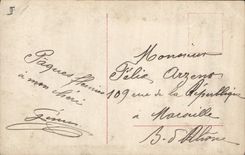 Pâques fleuries
à mon chéri
Monsieur
Félix Arzeno
109 rue de la République
à Marseille
B. d Rhône